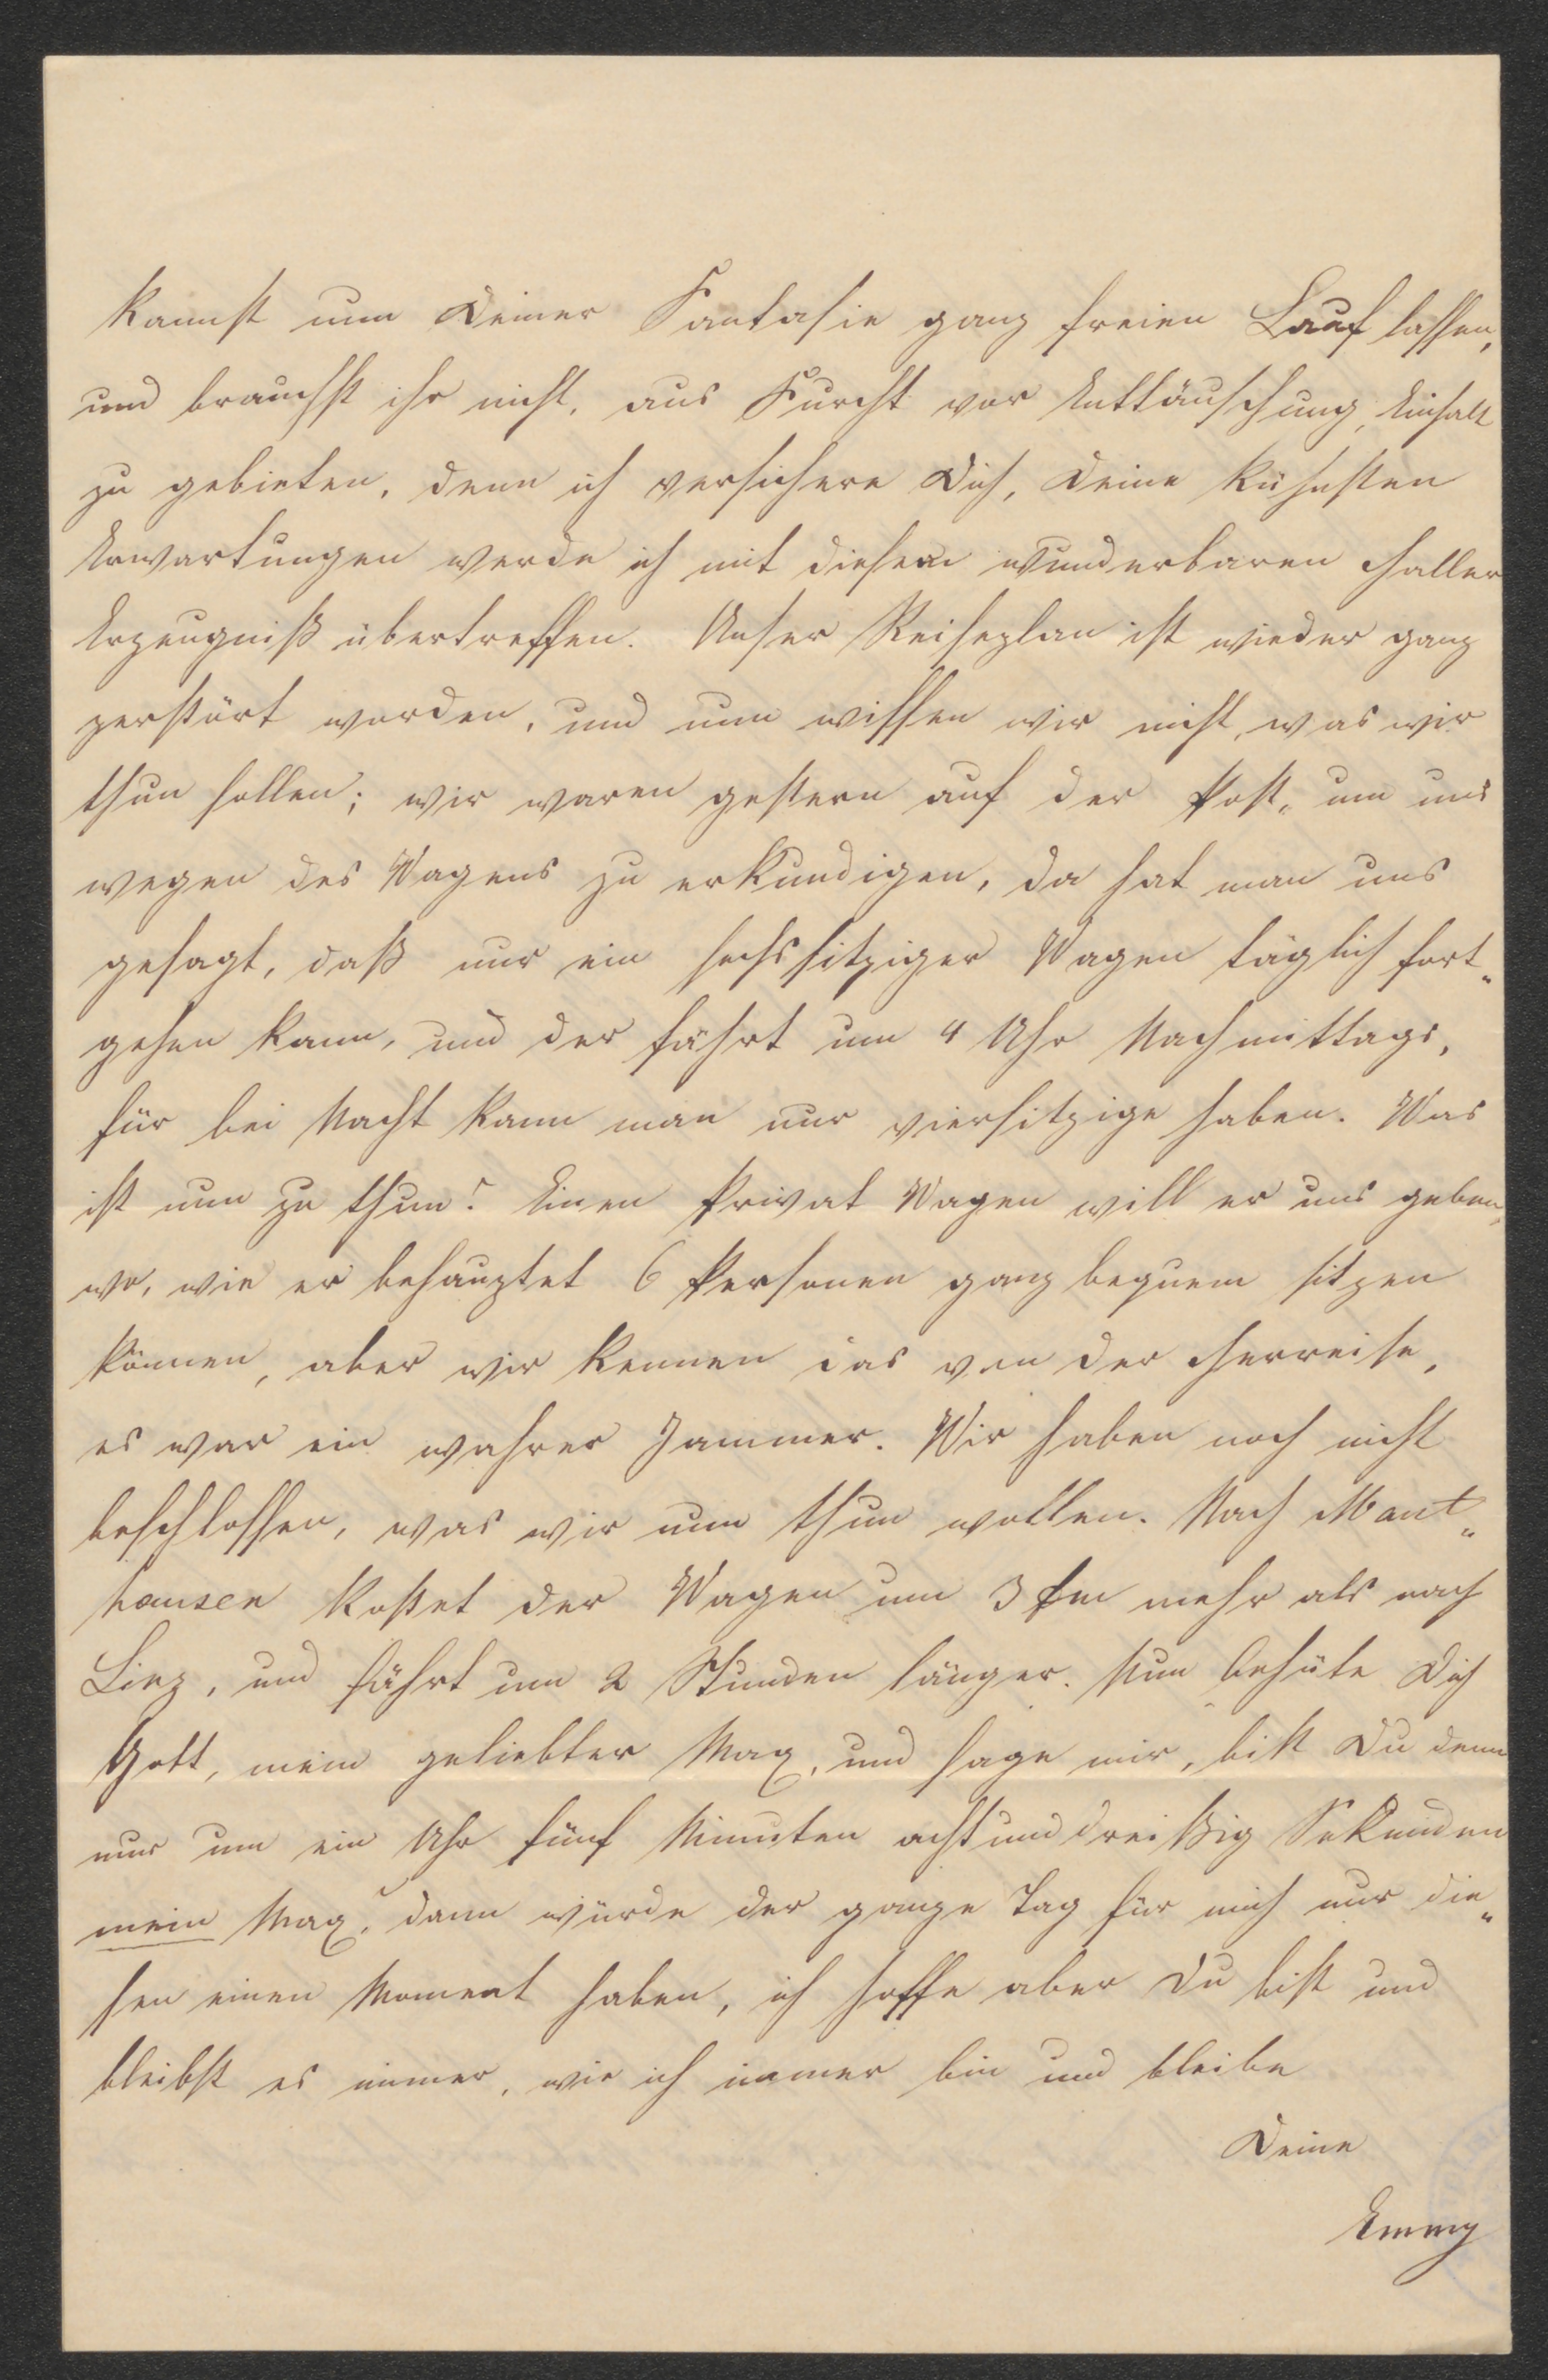 kannst nun Deiner Fantasie ganz freien Lauf lassen,
und brauchst ihr nicht, aus Furcht vor Enttäuschung, Einhalt
zu gebieten, denn ich versichere Dich, Deine kühnsten
Erwartungen werde ich mit diesem wunderbaren Haller
Erzeugniß übertreffen. Unser Reiseplan ist wieder ganz
zerstört worden, und nun wissen wir nicht, was wir
thun sollen; wir waren gestern auf der Post, um uns
wegen des Wagens zu erkundigen, da hat man uns
gesagt, daß nur ein sechssitziger Wagen täglich fort„
gehen kann, und der fährt um 4 Uhr Nachmittags,
für bei Nacht kann man nur viersitzige haben. Was
ist nun zu thun? Einen Privat Wagen will er uns geben,
wo, wie er behauptet 6 Personen ganz bequem sitzen
können, aber wir kennen das von der Herreise,
es war ein wahrer Jammer. Wir haben noch nicht
beschlossen, was wir nun thun wollen. Nach Maut„
hausen kostet der Wagen um 3 mehr als nach
Linz, und fährt um 2 Stunden länger. Nun behüte Dich
Gott, mein geliebter Max, und sage mir, bist Du denn
nur um ein Uhr fünf Minuten achtunddreißig Sekunden
mein Max? dann würde der ganze Tag für mich nur die„
sen einen Moment haben, ich hoffe aber Du bist und
bleibst es immer, wie ich immer bin und bleibe
Deine
Emmy